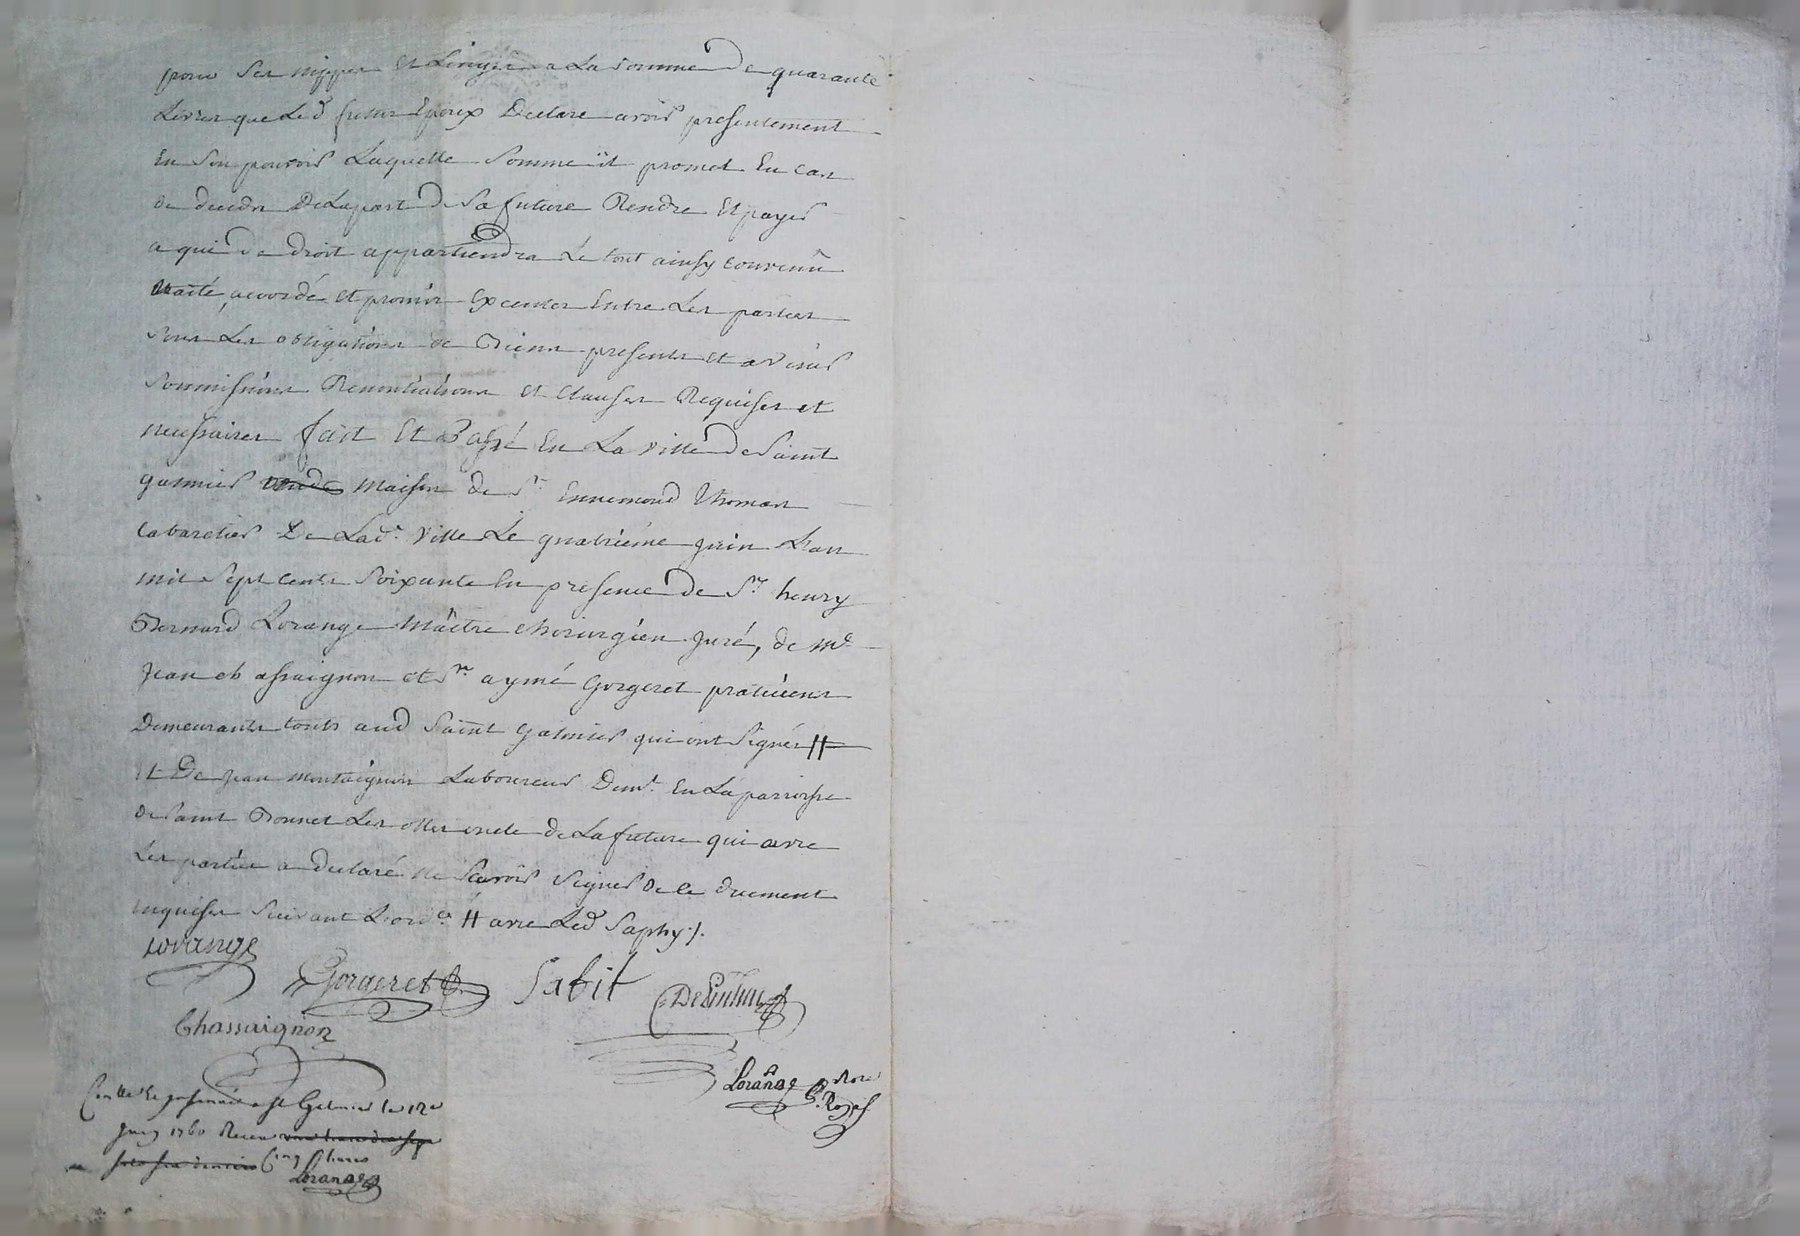 pour ses nippes et Linges a La somme de quarante
Livres que Led futur Epoux Declare avoir presentement
En Son pouvoir Laquelle Somme il promet En cas
de deceds De La part De Sa future Rendre Et payer
a qui De droit appartiendra Le tout ainsy convenû
traité, accordé Et promis Executer Entre Les parties
sous Les obligations de Biens presents et avenir
Soumissions Renontiations Et Clauses Requises et
necessaires fait Et Passé En La ville De Saint
galmier maison de Sr Ennemond Thomas
Cabaretier De Lade ville Le quatriéme juin L'an
mil sept cents Soixante En presence De Sr henry
Bernard Lorange Maître chirurgien juré, de Me
Jean chassaignon et Sr aymé Gorgeret praticiens
Demeurants touts aud Saint galmier qui ont signés #
Et De Jean montaignon Laboureur Demt En La parroisse
de Saint Bonnet Les oules oncle de La future qui avec
Les parties a declaré ne sçavoir signer De ce duement
requises suivant L'ordce # avec Led Saphy ./.
Lorange
Gorgeret Sabit
Chassaignon
Lorange
Conllé Et a St Galmier le 12e
Juin 1760 Receu
Cinq livres
Lorange